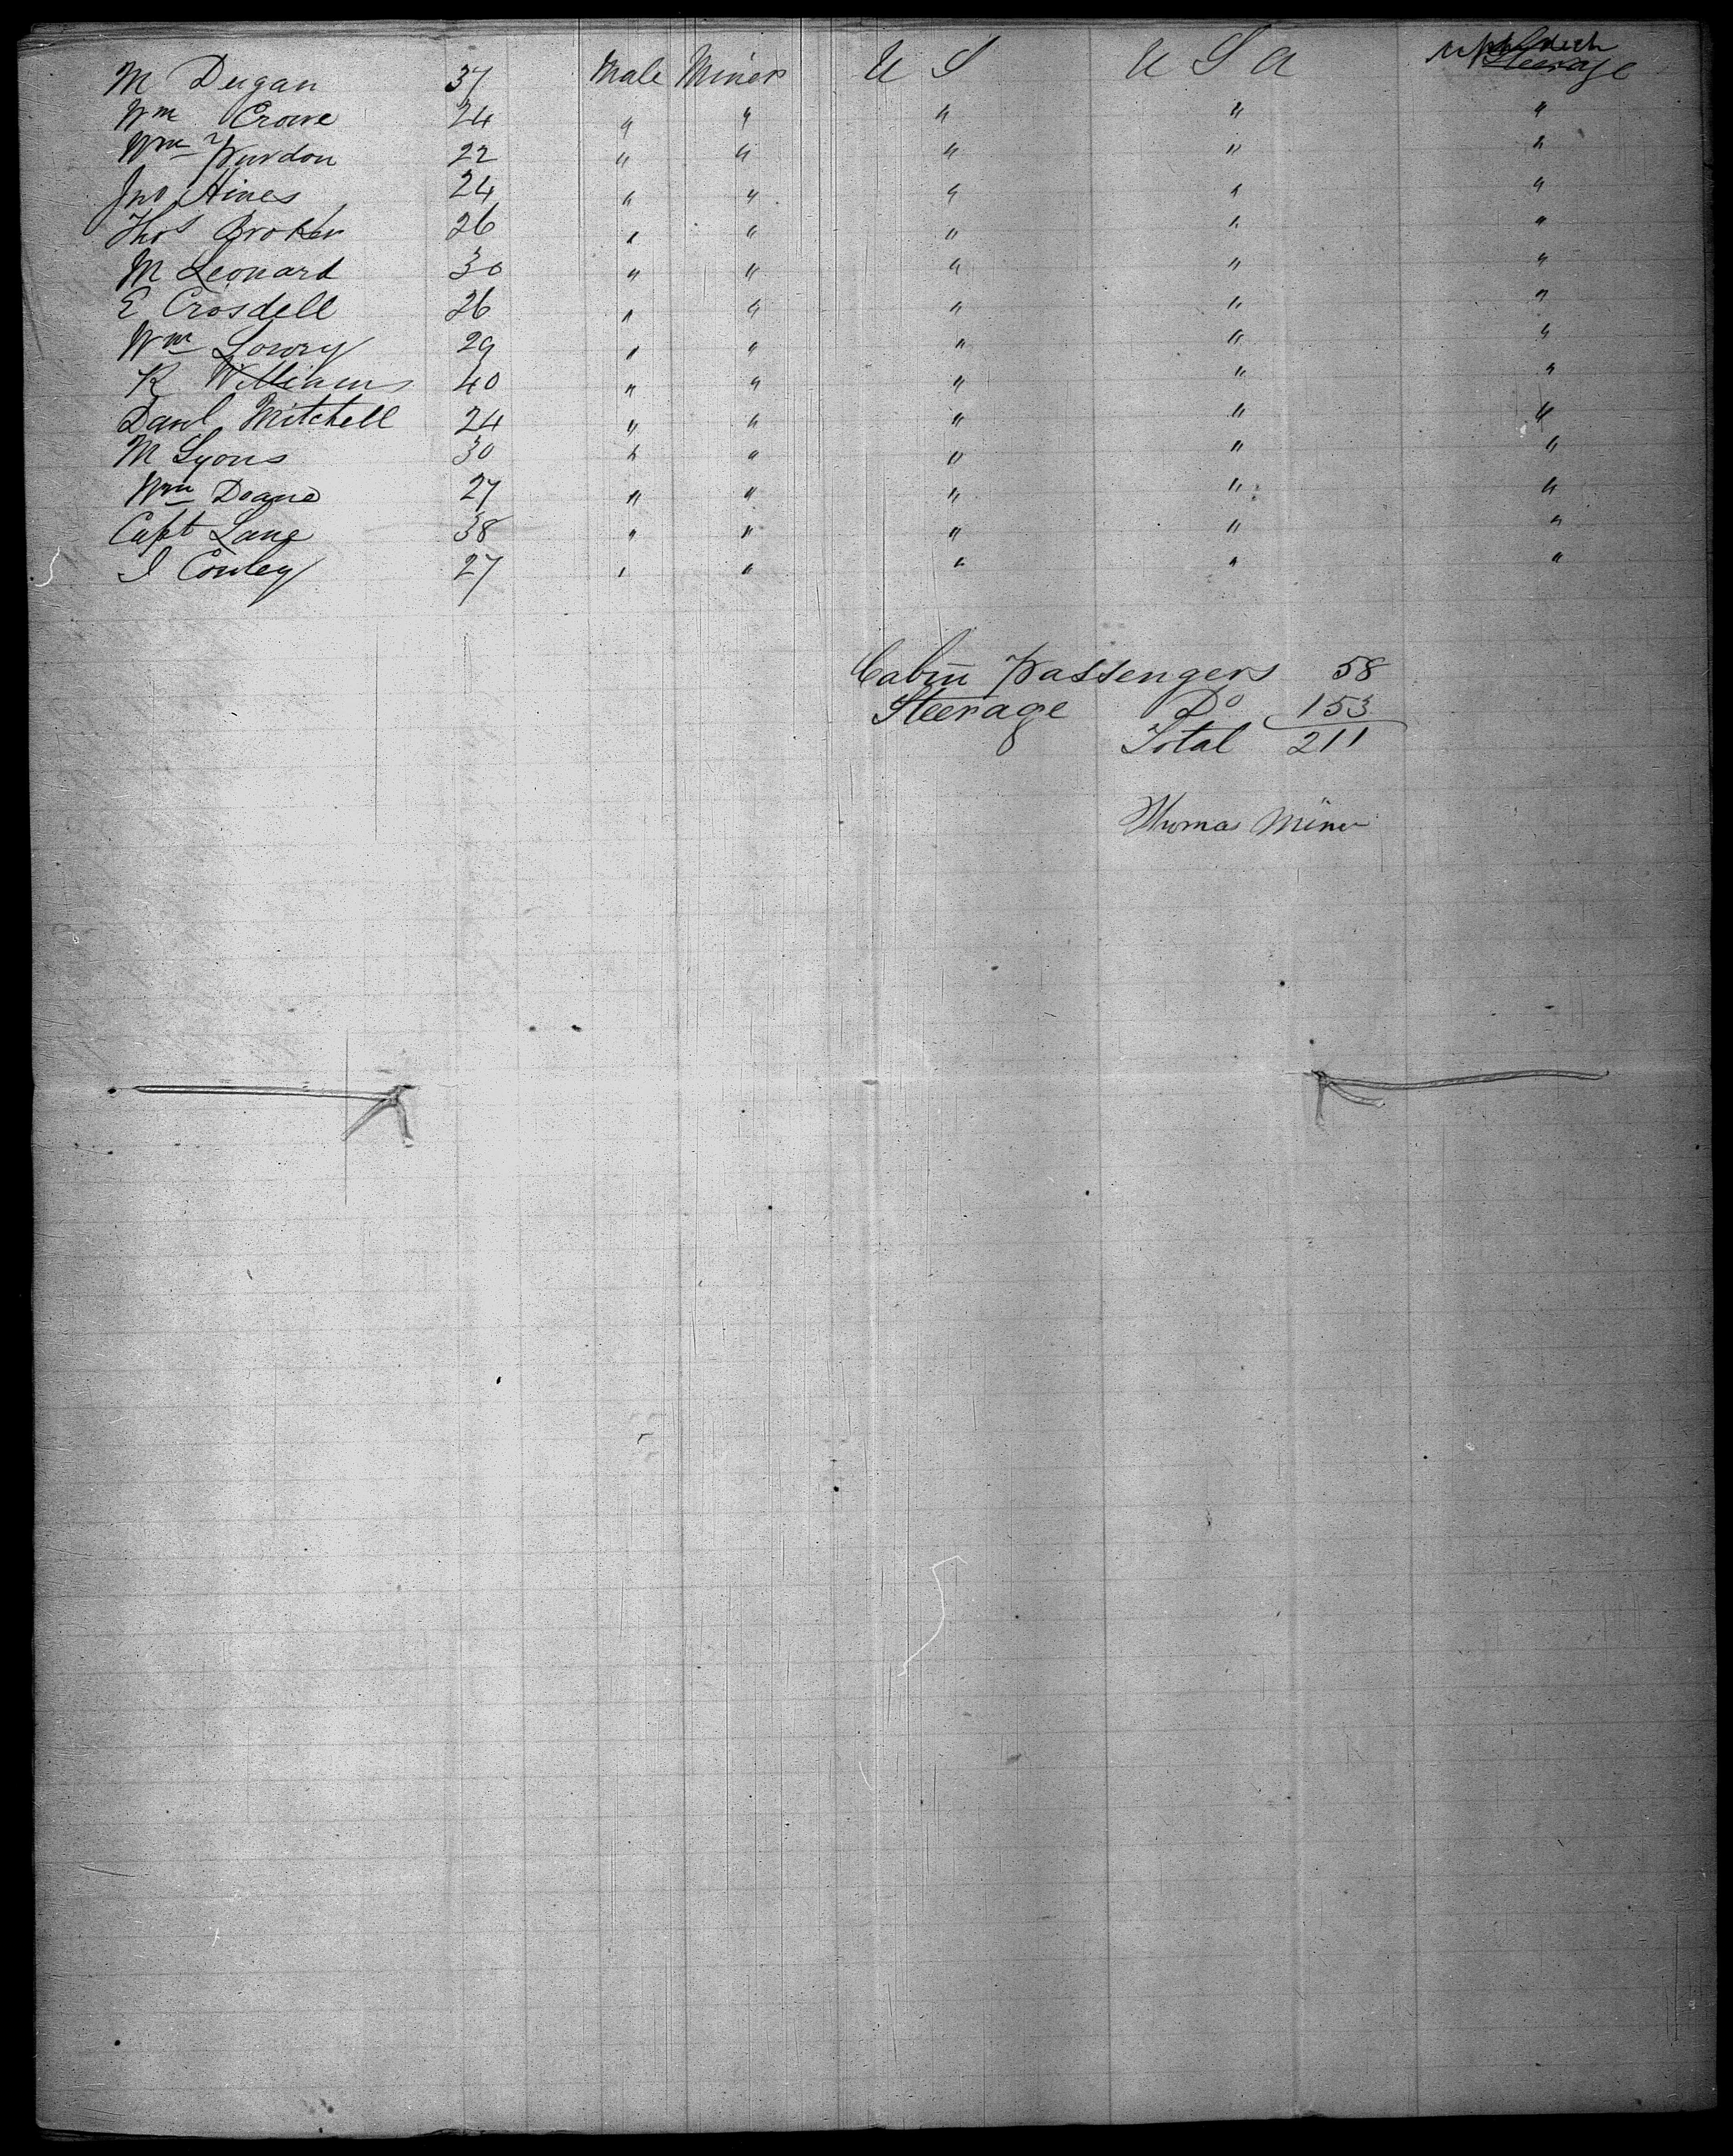 M Dugan 37 Male Miner U S U S A Upper deck Steerage
Wm Crowe 24 " " " " "
Wm Purdon 22 " " " " "
Jno Hines 24 " " " " "
Thos Broker 26 " " " " "
M Leonard 30 " " " " "
E Crosdell 26 " " " " "
Wm Lowry 29 " " " " "
R Williams 40 " " " " "
Danl Mitchell 24 " " " " "
M Lyons 30 " " " " "
Wm Doane 27 " " " " "
Capt Lane 38 " " " " "
I Conley 27 " " " " "
Cabin Passengers 58
Steerage Do 153
Total 211
Thomas Miner